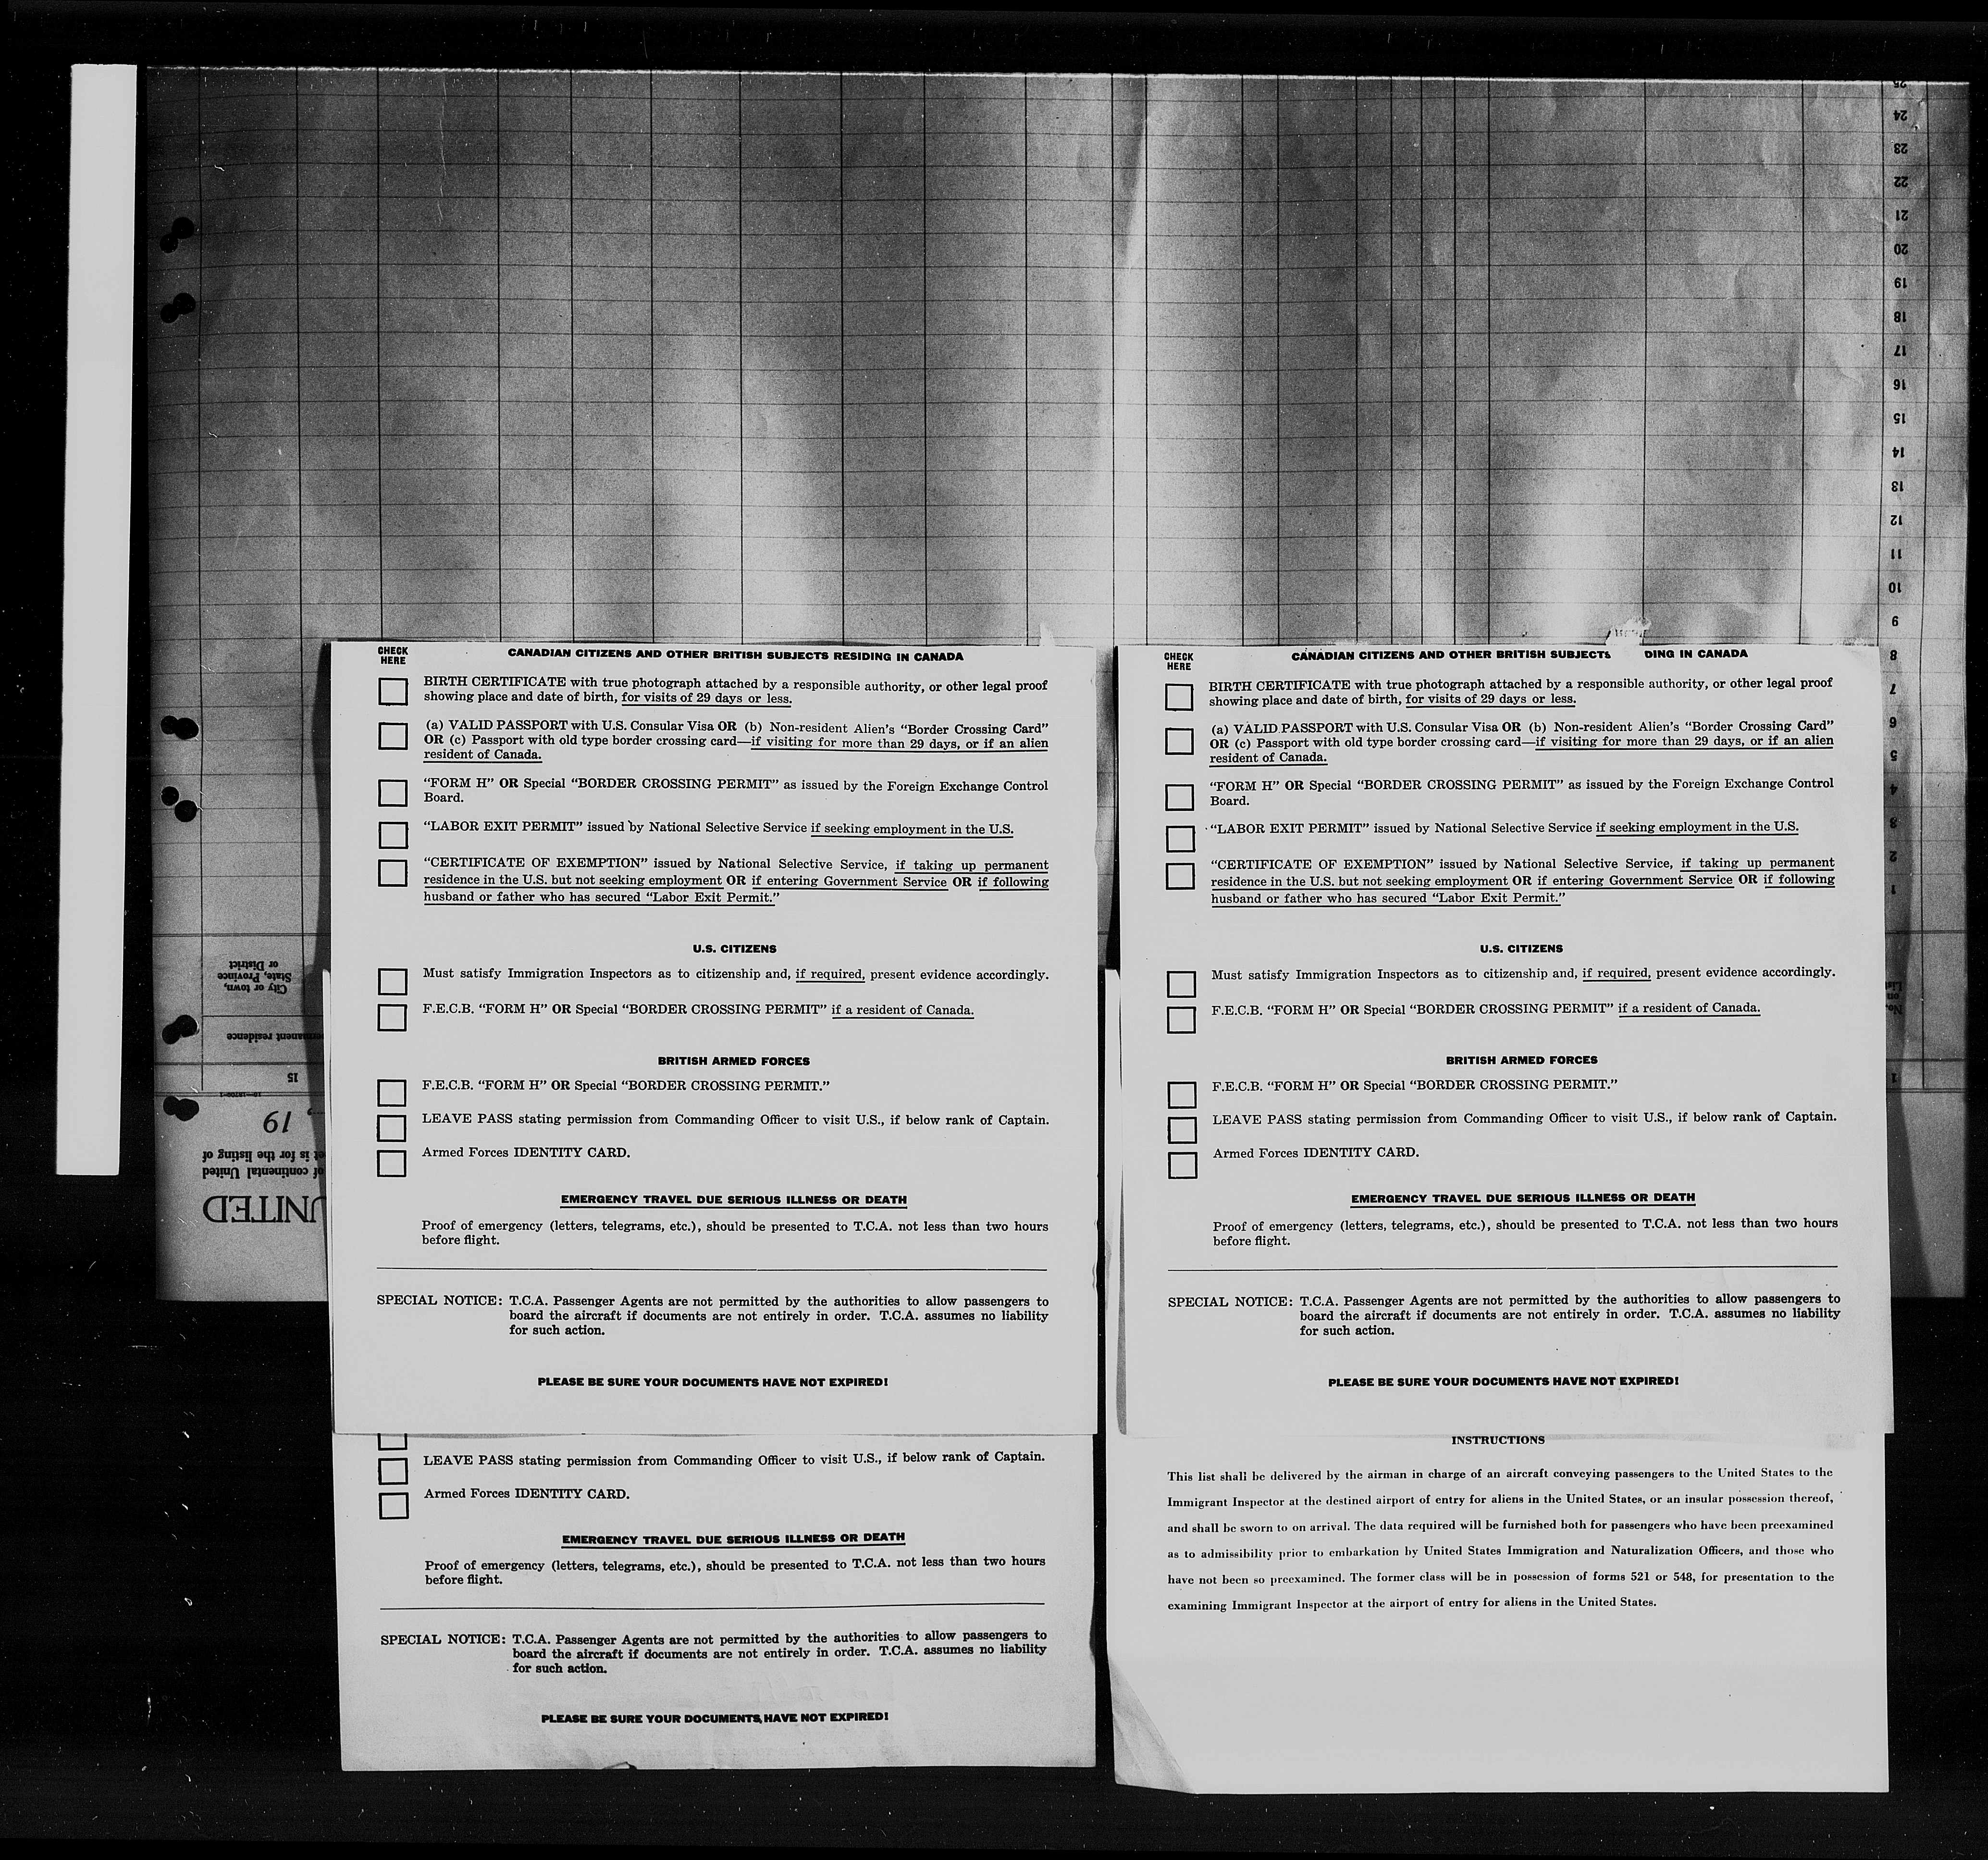 25
24
23
22
21
20
19
18
17
16
15
14
13
12
11
10
9
8
7
6
5
4
3
2
1
No.
on
List
1
City or town,
State, Province
or District
permanent residence
15
, 19
is for the listing of
of continental United
UNITED
CHECK
HERE
CANADIAN CITIZENS AND OTHER BRITISH SUBJECTS RESIDING IN CANADA
BIRTH CERTIFICATE with true photograph attached by a responsible authority, or other legal proof
showing place and date of birth, for visits of 29 days or less.
(a) VALID PASSPORT with U.S. Consular Visa OR (b) Non-resident Alien's “Border Crossing Card”
OR (c) Passport with old type border crossing card—if visiting for more than 29 days, or if an alien
resident of Canada.
“FORM H” OR Special “BORDER CROSSING PERMIT” as issued by the Foreign Exchange Control
Board.
“LABOR EXIT PERMIT” issued by National Selective Service if seeking employment in the U.S.
“CERTIFICATE OF EXEMPTION” issued by National Selective Service, if taking up permanent
residence in the U.S. but not seeking employment OR if entering Government Service OR if following
husband or father who has secured “Labor Exit Permit.”
U.S. CITIZENS
Must satisfy Immigration Inspectors as to citizenship and, if required, present evidence accordingly.
F.E.C.B. “FORM H” OR Special “BORDER CROSSING PERMIT” if a resident of Canada.
BRITISH ARMED FORCES
F.E.C.B. “FORM H” OR Special “BORDER CROSSING PERMIT.”
LEAVE PASS stating permission from Commanding Officer to visit U.S., if below rank of Captain.
Armed Forces IDENTITY CARD.
EMERGENCY TRAVEL DUE SERIOUS ILLNESS OR DEATH
Proof of emergency (letters, telegrams, etc.), should be presented to T.C.A. not less than two hours
before flight.
SPECIAL NOTICE: T.C.A. Passenger Agents are not permitted by the authorities to allow passengers to
board the aircraft if documents are not entirely in order. T.C.A. assumes no liability
for such action.
PLEASE BE SURE YOUR DOCUMENTS HAVE NOT EXPIRED!
LEAVE PASS stating permission from Commanding Officer to visit U.S., if below rank of Captain.
Armed Forces IDENTITY CARD.
EMERGENCY TRAVEL DUE SERIOUS ILLNESS OR DEATH
Proof of emergency (letters, telegrams, etc.), should be presented to T.C.A. not less than two hours
before flight.
SPECIAL NOTICE: T.C.A. Passenger Agents are not permitted by the authorities to allow passengers to
board the aircraft if documents are not entirely in order. T.C.A. assumes no liability
for such action.
PLEASE BE SURE YOUR DOCUMENTS HAVE NOT EXPIRED!
CHECK
HERE
CANADIAN CITIZENS AND OTHER BRITISH SUBJECTS DING IN CANADA
BIRTH CERTIFICATE with true photograph attached by a responsible authority, or other legal proof
showing place and date of birth, for visits of 29 days or less.
(a) VALID PASSPORT with U.S. Consular Visa OR (b) Non-resident Alien's “Border Crossing Card”
OR (c) Passport with old type border crossing card—if visiting for more than 29 days, or if an alien
resident of Canada.
“FORM H” OR Special “BORDER CROSSING PERMIT” as issued by the Foreign Exchange Control
Board.
“LABOR EXIT PERMIT” issued by National Selective Service if seeking employment in the U.S.
“CERTIFICATE OF EXEMPTION” issued by National Selective Service, if taking up permanent
residence in the U.S. but not seeking employment OR if entering Government Service OR if following
husband or father who has secured “Labor Exit Permit.”
U.S. CITIZENS
Must satisfy Immigration Inspectors as to citizenship and, if required, present evidence accordingly.
F.E.C.B. “FORM H” OR Special “BORDER CROSSING PERMIT” if a resident of Canada.
BRITISH ARMED FORCES
F.E.C.B. “FORM H” OR Special “BORDER CROSSING PERMIT.”
LEAVE PASS stating permission from Commanding Officer to visit U.S., if below rank of Captain.
Armed Forces IDENTITY CARD.
EMERGENCY TRAVEL DUE SERIOUS ILLNESS OR DEATH
Proof of emergency (letters, telegrams, etc.), should be presented to T.C.A. not less than two hours
before flight.
SPECIAL NOTICE: T.C.A. Passenger Agents are not permitted by the authorities to allow passengers to
board the aircraft if documents are not entirely in order. T.C.A. assumes no liability
for such action.
PLEASE BE SURE YOUR DOCUMENTS HAVE NOT EXPIRED!
INSTRUCTIONS
This list shall be delivered by the airman in charge of an aircraft conveying passengers to the United States to the
Immigrant Inspector at the destined airport of entry for aliens in the United States, or an insular possession thereof,
and shall be sworn to on arrival. The data required will be furnished both for passengers who have been preexamined
as to admissibility prior to embarkation by United States Immigration and Naturalization Officers, and those who
have not been so preexamined. The former class will be in possession of forms 521 or 548, for presentation to the
examining Immigrant Inspector at the airport of entry for aliens in the United States.